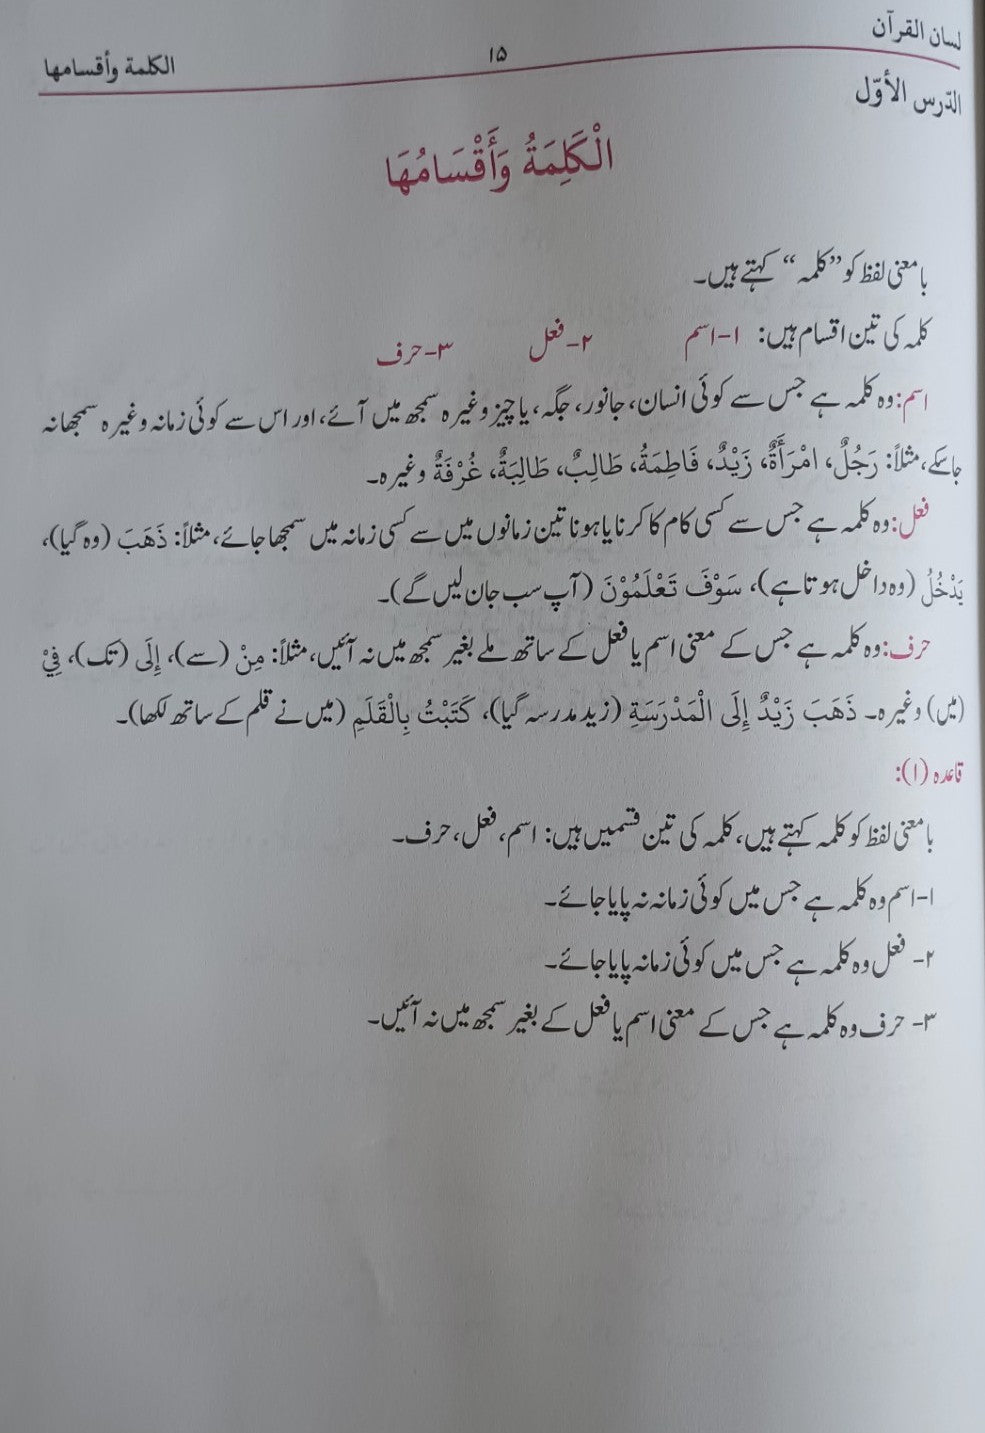 لسان القرآن
۱۵
الكلمة وأقسامها
الدّرس الأوّل
الْكَلِمَةُ وَأَقْسَامُهَا
بامعنی لفظ کو ”کلمہ“ کہتے ہیں۔
کلمہ کی تین اقسام ہیں: ۱-اسم ۲-فعل ۳-حرف
اسم: وہ کلمہ ہے جس سے کوئی انسان، جانور، جگہ، یا چیز وغیرہ سمجھ میں آئے، اور اس سے کوئی زمانہ وغیرہ سمجھا نہ
جاسکے، مثلاً: رَجُلٌ، امْرَأَةٌ، زَيْدٌ، فَاطِمَةُ، طَالِبٌ، طَالِبَةٌ، غُرْفَةٌ وغیرہ۔
فعل: وہ کلمہ ہے جس سے کسی کام کا کرنا یا ہونا تین زمانوں میں سے کسی زمانہ میں سمجھا جائے، مثلاً: ذَهَبَ (وہ گیا)،
يَدْخُلُ (وہ داخل ہوتا ہے)، سَوْفَ تَعْلَمُوْنَ (آپ سب جان لیں گے)۔
حرف: وہ کلمہ ہے جس کے معنی اسم یا فعل کے ساتھ ملے بغیر سمجھ میں نہ آئیں، مثلاً: مِنْ (سے)، إِلَى (تک)، فِيْ
(میں) وغیرہ۔ ذَهَبَ زَيْدٌ إِلَى الْمَدْرَسَةِ (زید مدرسہ گیا)، كَتَبْتُ بِالْقَلَمِ (میں نے قلم کے ساتھ لکھا)۔
قاعدہ (۱):
بامعنی لفظ کو کلمہ کہتے ہیں، کلمہ کی تین قسمیں ہیں: اسم، فعل، حرف۔
۱-اسم وہ کلمہ ہے جس میں کوئی زمانہ نہ پایا جائے۔
۲- فعل وہ کلمہ ہے جس میں کوئی زمانہ پایا جائے۔
۳- حرف وہ کلمہ ہے جس کے معنی اسم یا فعل کے بغیر سمجھ میں نہ آئیں۔